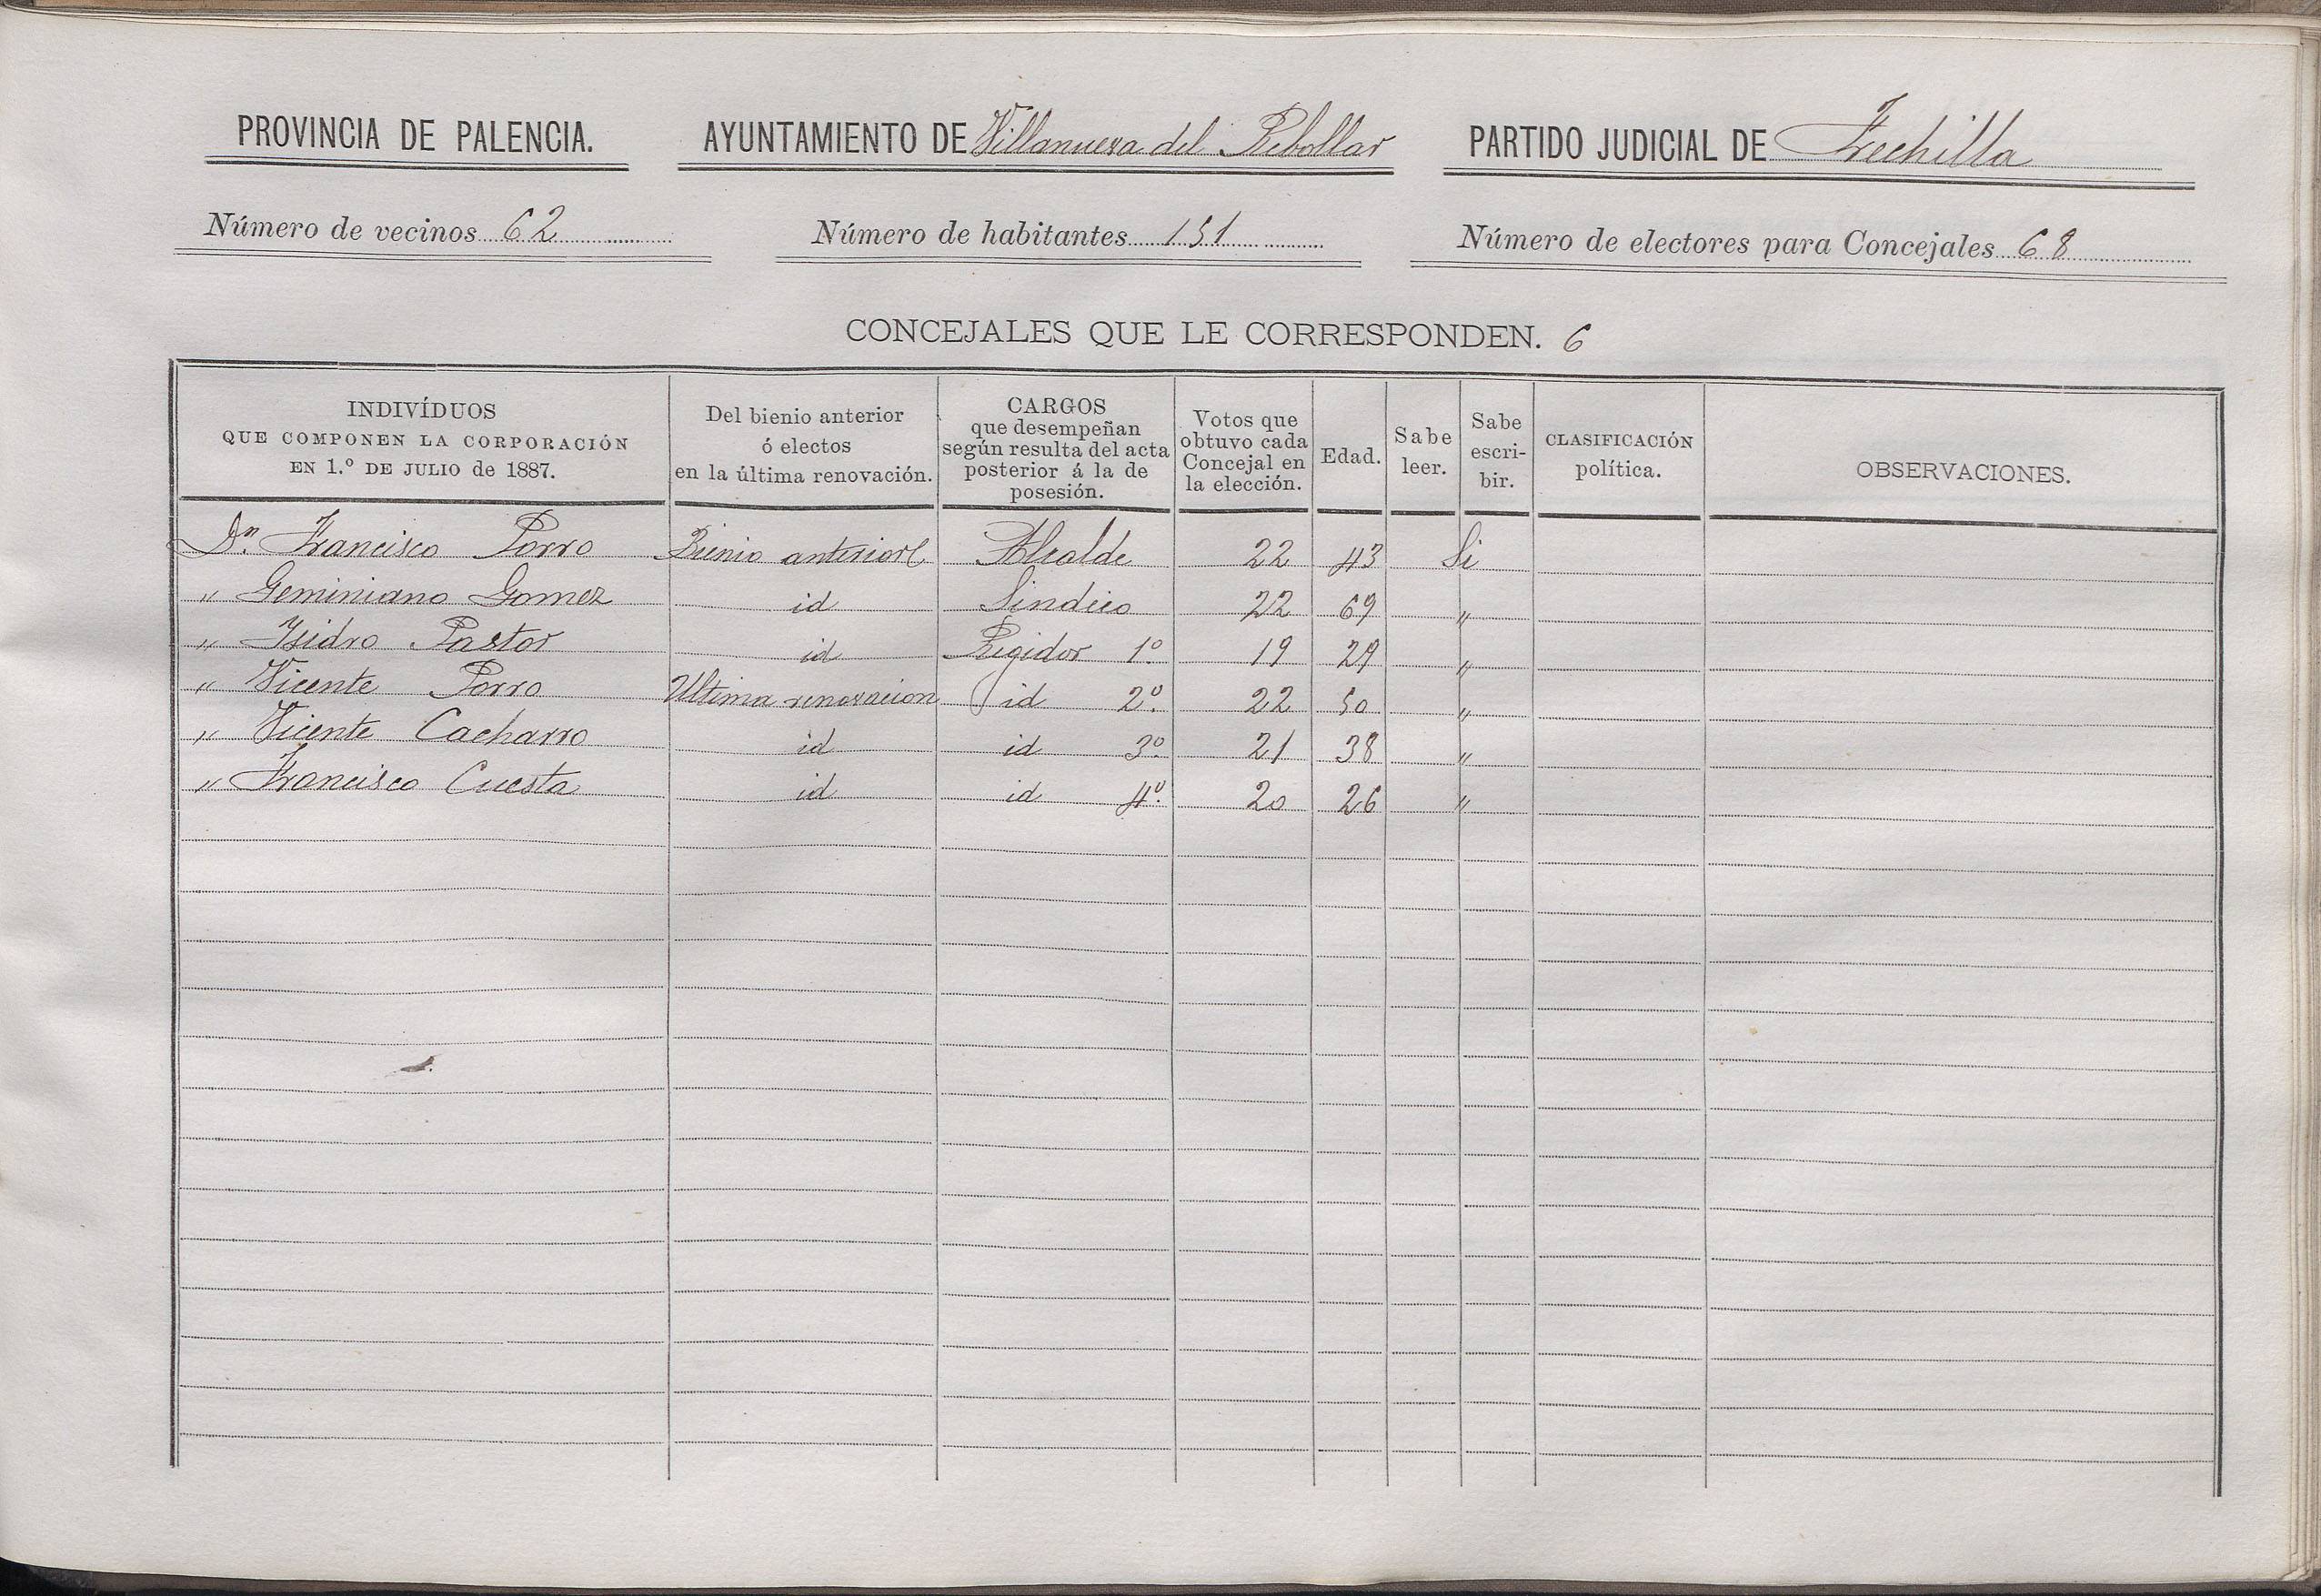 PROVINCIA DE PALENCIA. AYUNTAMIENTO DE Villanueva del Rebollar PARTIDO JUDICIAL DE Frechilla
Número de vecinos 62 Número de habitantes 151 Número de electores para Concejales 68
CONCEJALES QUE LE CORRESPONDEN. 6
INDIVÍDUOS
QUE COMPONEN LA CORPORACIÓN
EN 1.º DE JULIO de 1887.
Del bienio anterior
ó electos
en la última renovación.
CARGOS
que desempeñan
según resulta del acta
posterior á la de
posesión.
Votos que
obtuvo cada
Concejal en
la elección.
Edad.
Sabe
leer.
Sabe
escri-
bir.
CLASIFICACIÓN
política.
OBSERVACIONES.
Dn. Francisco Porro Bienio anterior Alcalde 22 43 Si
" Geminiano Gomez id Sindico 22 69 "
" Isidro Pastor id Regidor 1º 19 29 "
" Vicente Porro Ultima renovacion id 2º 22 50 "
" Vicente Cacharro id id 3º 21 38 "
" Francisco Cuesta id id 4º 20 26 "